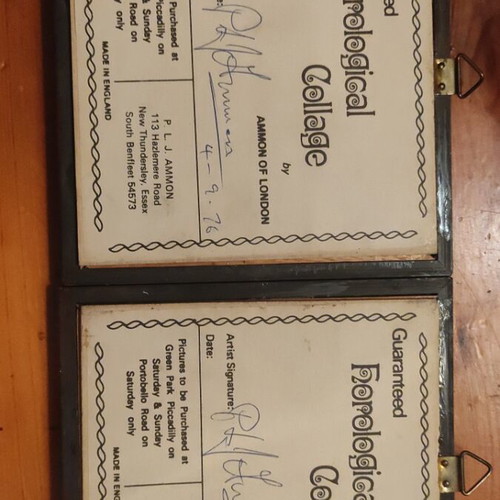 ed
rological
Collage
by
AMMON OF LONDON
4-9-76
Purchased at
Piccadilly on
& Sunday
Road on
only
P. L. J. AMMON
113 Hazlemere Road
New Thundersley, Essex
South Benfleet 54573
MADE IN ENGLAND
Guaranteed
Horologica
Co
Artist Signature:
Date:
Pictures to be Purchased at
Green Park Piccadilly on
Saturday & Sunday
Portobello Road on
Saturday only
MADE IN ENG